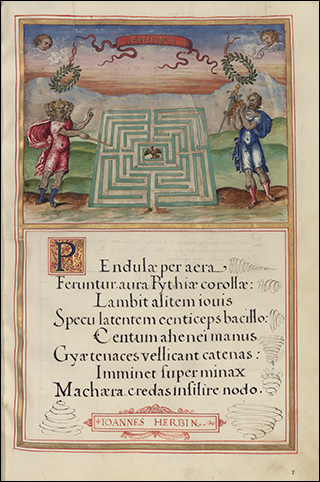 ÆNIGMA
PEndulæ per aera
Feruntur aura Pythiæ corollæ:
Lambit alitem iouis
Specu latentem centiceps bacillo:
Centum ahenei manus
Gyæ tenaces vellicant catenas:
Imminet super minax
Machæra credas insilire nodo.
IOANNES HERBIN